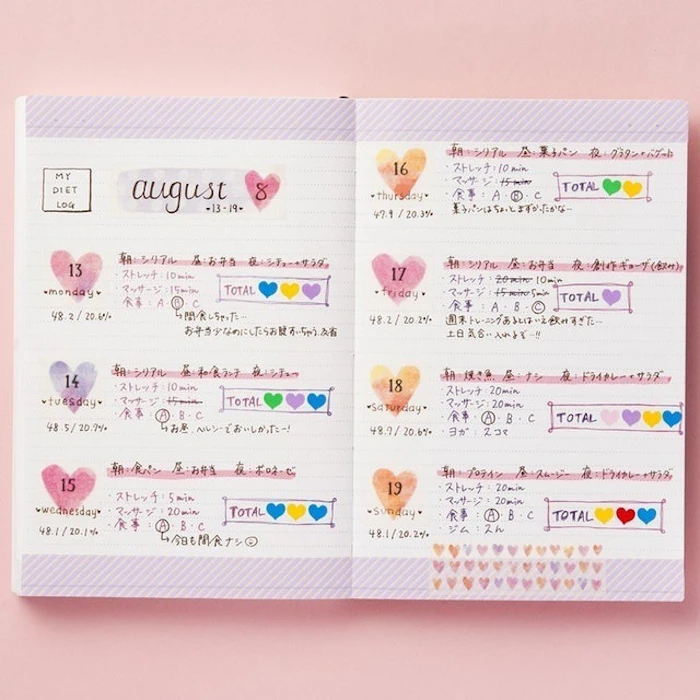 MY
DIET
LOG
august 8
•13-19•
13
monday
48.2 / 20.6%
朝:シリアル 昼:お弁当 夜:シチュー+サラダ
・ストレッチ:10min
・マッサージ:15min
・食事:A・B・C
TOTAL
間食しちゃった…
お弁当少なめにしたらお腹すいちゃう
14
tuesday
48.5 / 20.9%
朝:シリアル 昼:和食ランチ 夜:シチュー
・ストレッチ:10min
・マッサージ:15min
・食事:A・B・C
TOTAL
お昼、ヘルシーでおいしかったー!
15
wednesday
48.1 / 20.1%
朝:食パン 昼:お弁当 夜:ボロネーゼ
・ストレッチ:5min
・マッサージ:20min
・食事:A・B・C
TOTAL
今日も間食ナシ
16
thursday
47.9 / 20.3%
朝:シリアル 昼:菓子パン 夜:グラタン+バゲット
・ストレッチ:10min
・マッサージ:15min
・食事:A・B・C
TOTAL
菓子パンはちょっとまずかったかな…
17
friday
48.2 / 20.2%
朝:シリアル 昼:お弁当 夜:創作ギョーザ(飲み)
・ストレッチ:20min 10min
・マッサージ:15min 5min
・食事:A・B・C
TOTAL
週末トレーニングあるとはいえ飲みすぎた…
土日気合い入れよう…!!
18
saturday
48.9 / 20.6%
朝:焼き魚 昼:ナシ 夜:ドライカレー+サラダ
・ストレッチ:20min
・マッサージ:20min
・食事:A・B・C
・ヨガ:スコマ
TOTAL
19
sunday
48.1 / 20.2%
朝:プロテイン 昼:スムージー 夜:ドライカレー+サラダ
・ストレッチ:20min
・マッサージ:20min
・食事:A・B・C
・ジム:
TOTAL